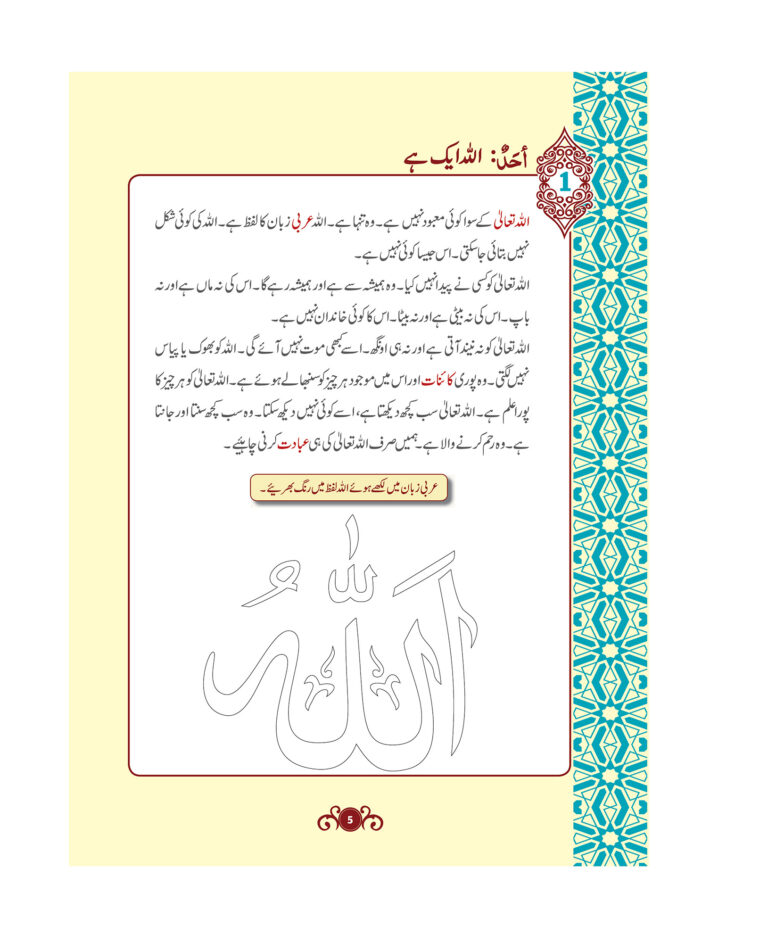 1
أَحَدٌ: اللہ ایک ہے
اللہ تعالیٰ کے سوا کوئی معبود نہیں ہے۔ وہ تنہا ہے۔ اللہ عربی زبان کا لفظ ہے۔ اللہ کی کوئی شکل
نہیں بتائی جاسکتی۔ اس جیسا کوئی نہیں ہے۔
اللہ تعالیٰ کو کسی نے پیدا نہیں کیا۔ وہ ہمیشہ سے ہے اور ہمیشہ رہے گا۔ اس کی نہ ماں ہے اور نہ
باپ۔ اس کی نہ بیٹی ہے اور نہ بیٹا۔ اس کا کوئی خاندان نہیں ہے۔
اللہ تعالیٰ کو نہ نیند آتی ہے اور نہ ہی اونگھ۔ اسے کبھی موت نہیں آئے گی۔ اللہ کو بھوک یا پیاس
نہیں لگتی۔ وہ پوری کائنات اور اس میں موجود ہر چیز کو سنبھالے ہوئے ہے۔ اللہ تعالیٰ کو ہر چیز کا
پورا علم ہے۔ اللہ تعالیٰ سب کچھ دیکھتا ہے، اسے کوئی نہیں دیکھ سکتا۔ وہ سب کچھ سنتا اور جانتا
ہے۔ وہ رحم کرنے والا ہے۔ ہمیں صرف اللہ تعالیٰ کی ہی عبادت کرنی چاہیئے۔
عربی زبان میں لکھے ہوئے اللہ لفظ میں رنگ بھریئے۔
اَللّٰهُ
5